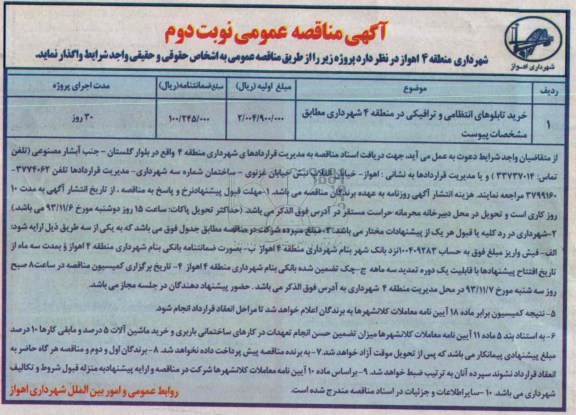 آگهی مناقصه عمومی نوبت دوم
شهرداری منطقه ۴ اهواز در نظر دارد پروژه زیر را از طریق مناقصه عمومی به اشخاص حقوقی و حقیقی واجد شرایط واگذار نماید.
شهرداری اهواز
ردیف موضوع مبلغ اولیه (ریال) مبلغ ضمانتنامه(ریال) مدت اجرای پروژه
۱ خرید تابلوهای انتظامی و ترافیکی در منطقه ۴ شهرداری مطابق مشخصات پیوست ۲/۰۰۴/۹۰۰/۰۰۰ ۱۰۰/۲۴۵/۰۰۰ ۳۰ روز
از متقاضیان واجد شرایط دعوت به عمل می آید، جهت دریافت اسناد مناقصه به مدیریت قراردادهای شهرداری منطقه ۴ واقع در بلوار گلستان - جنب آبشار مصنوعی (تلفن
تماس: ۳۳۷۳۷۰۱۴ ) و یا مدیریت قراردادها به نشانی : اهواز - خیابان انقلاب نبش خیابان غزنوی - ساختمان شماره سه شهرداری- مدیریت قراردادها تلفن ۳۷۷۴۰۶۲-
۳۷۹۹۱۶۰ مراجعه نمایند. هزینه انتشار آگهی روزنامه به عهده برندگان مناقصه می باشد. ۱-مهلت قبول پیشنهاد نرخ و پاسخ به مناقصه ، از تاریخ انتشار آگهی به مدت ۱۰
روز کاری است و تحویل در محل دبیرخانه محرمانه حراست مستقر در آدرس فوق الذکر می باشد. (حداکثر تحویل پاکات: ساعت ۱۵ روز دوشنبه مورخ ۹۳/۱۱/۶ می باشد.)
۲-شهرداری در رد کلیه یا قبول هر یک از پیشنهادات مختار می باشد. ۳- مبلغ سپرده شرکت در مناقصه مطابق جدول فوق می باشد که به یکی از سه طریق ذیل ارایه شود:
الف-فیش واریز مبلغ فوق به حساب ۱۰۰۴۰۹۲۸۳نزد بانک شهر بنام شهرداری منطقه ۴ اهواز ب- بصورت ضمانتنامه بانکی بنام شهرداری منطقه ۴ اهواز و بمدت سه ماه از
تاریخ افتتاح پیشنهادها با قابلیت یک دوره تمدید سه ماهه ج-چک تضمین شده بانکی بنام شهرداری منطقه ۴ اهواز ۴- تاریخ برگزاری کمیسیون مناقصه در ساعت۸ صبح
روز سه شنبه مورخ ۹۳/۱۱/۷ در محل مدیریت منطقه ۴ شهرداری به آدرس فوق الذکر می باشد. حضور پیشنهاد دهندگان در جلسه مجاز می باشد.
۵- نتیجه کمیسیون برابر ماده ۱۸ آیین نامه معاملات کلانشهرها به برندگان اعلام خواهد شد تا مراحل انعقاد قرارداد انجام شود.
۶- به استناد بند ۵ ماده ۱۱ آیین نامه معاملات کلانشهرها میزان تضمین حسن انجام تعهدات در کارهای ساختمانی باربری و خرید ماشین آلات ۵ درصد و مابقی کارها ۱۰ درصد
مبلغ پیشنهادی پیمانکار می باشد که پس از تحویل موقت آزاد خواهد شد. ۷- به برنده مناقصه پیش پرداخت داده نخواهد شد. ۸- برندگان اول و دوم مناقصه هر گاه حاضر به
انعقاد قرارداد نشوند سپرده آنان به ترتیب ضبط خواهد شد. ۹- براساس ماده ۱۰ آیین نامه معاملات کلانشهرها شرکت در مناقصه و ارایه پیشنهاد به منزله قبول شروط و تکالیف
شهرداری می باشد. ۱۰- سایر اطلاعات و جزئیات در اسناد مناقصه مندرج شده است.
روابط عمومی و امور بین الملل شهرداری اهواز